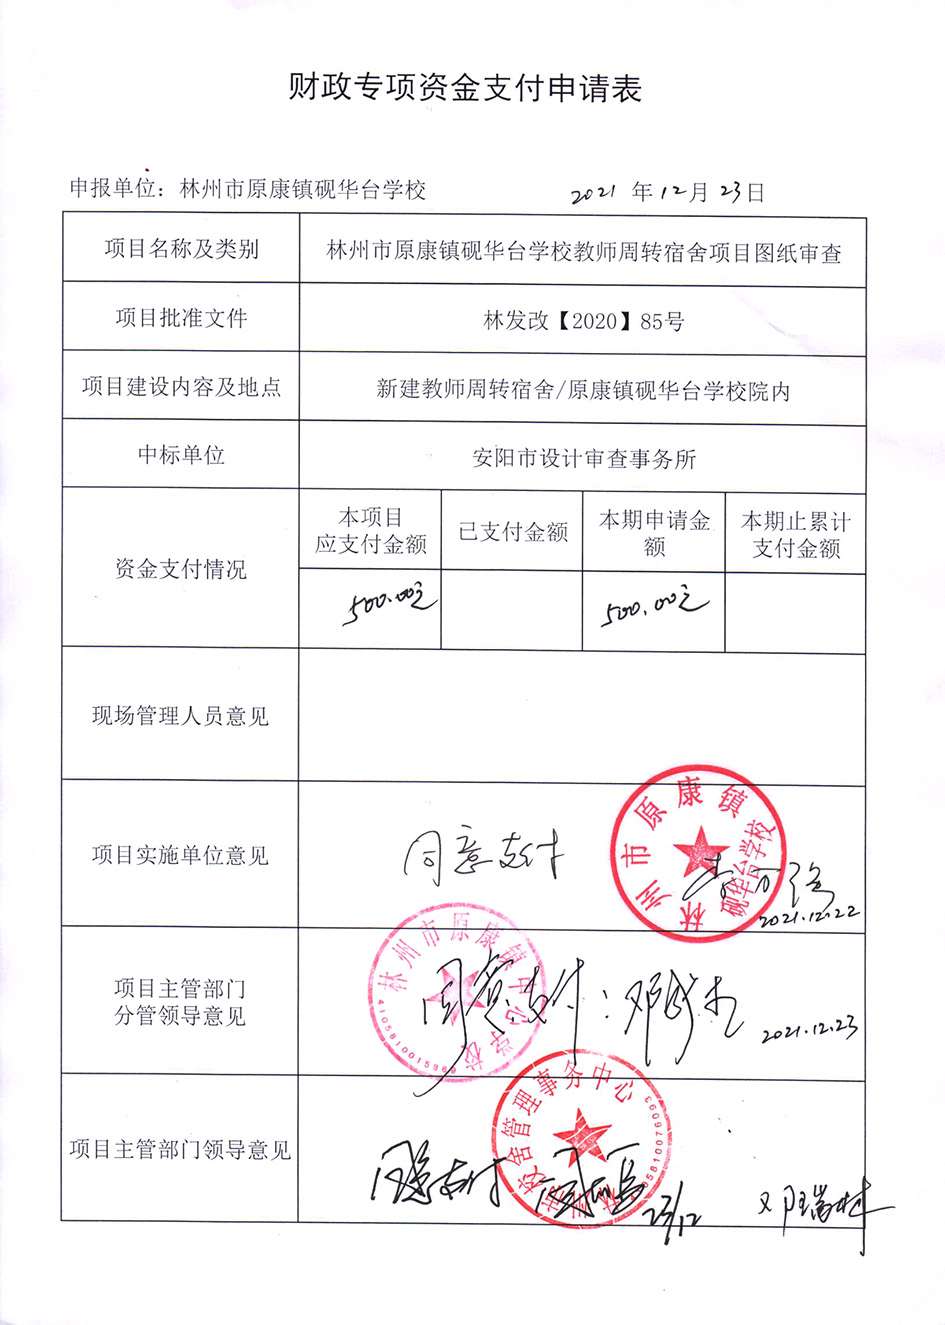 财政专项资金支付申请表
申报单位：林州市原康镇砚华台学校 2021 年 12 月 23 日
项目名称及类别 林州市原康镇砚华台学校教师周转宿舍项目图纸审查
项目批准文件 林发改【2020】85号
项目建设内容及地点 新建教师周转宿舍/原康镇砚华台学校院内
中标单位 安阳市设计审查事务所
资金支付情况
本项目
应支付金额
已支付金额
本期申请金
额
本期止累计
支付金额
500.00元 500.00元
现场管理人员意见
项目实施单位意见
同意支付
林州市原康镇
砚华台学校
2021.12.22
项目主管部门
分管领导意见
林州市原康镇中心学校
4105810015969
同意支付：
2021.12.23
项目主管部门领导意见
林州市校舍管理事务中心
同意支付
23/12